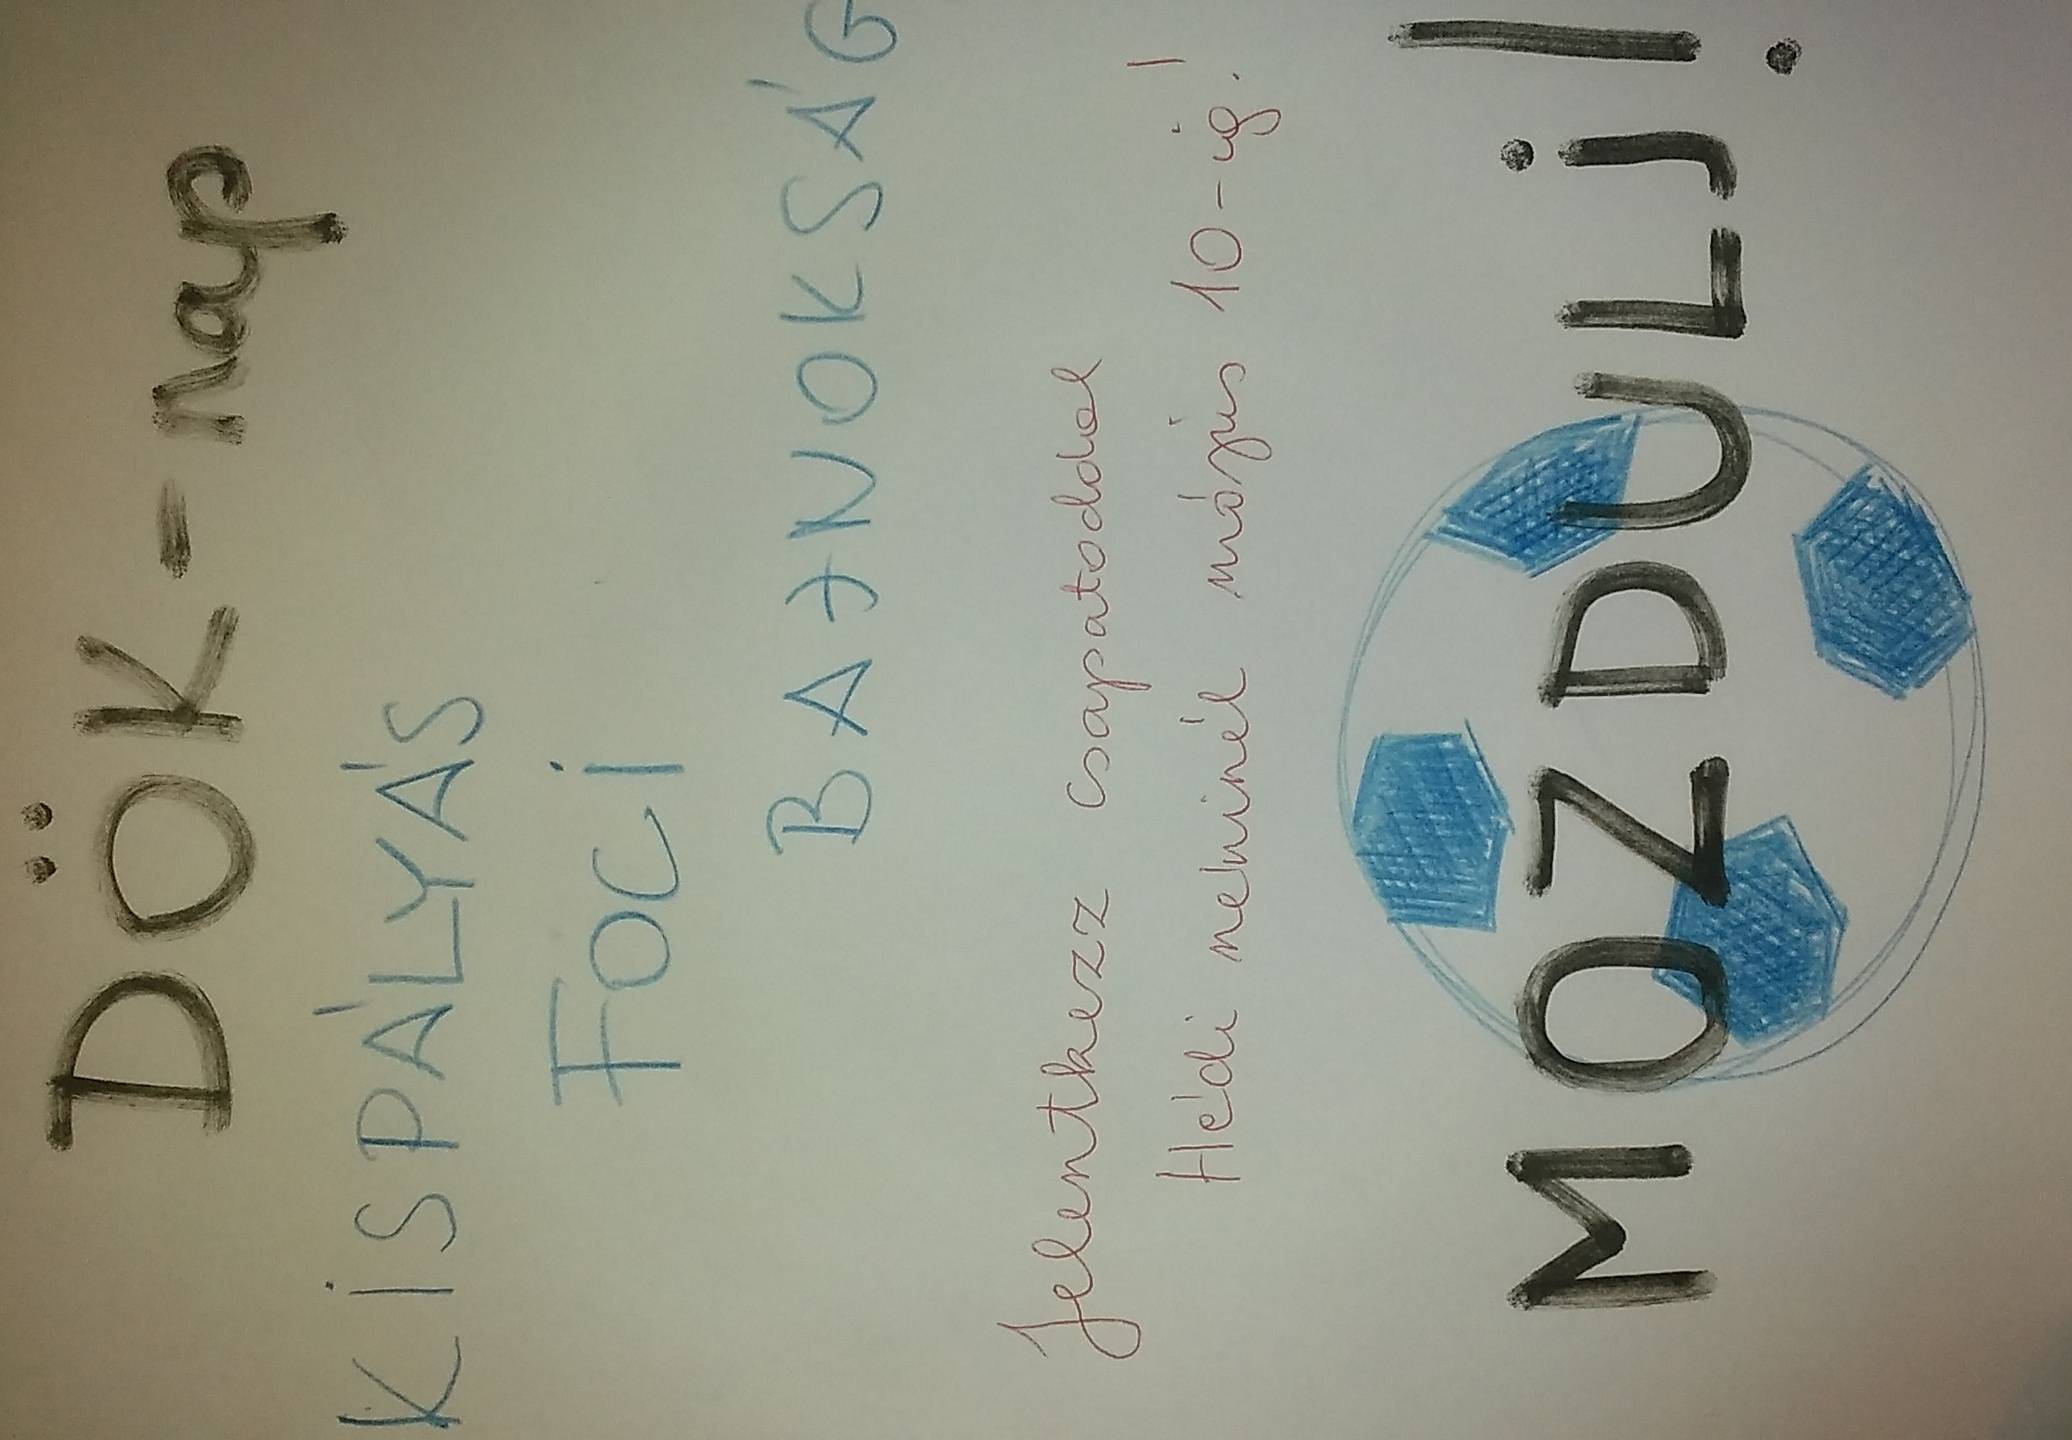 DÖK-nap
KISPÁLYÁS
FOCI
BAJNOKSÁG
Jelentkezz csapatoddal
Hédi neninél május 10-ig!
MOZDULj!